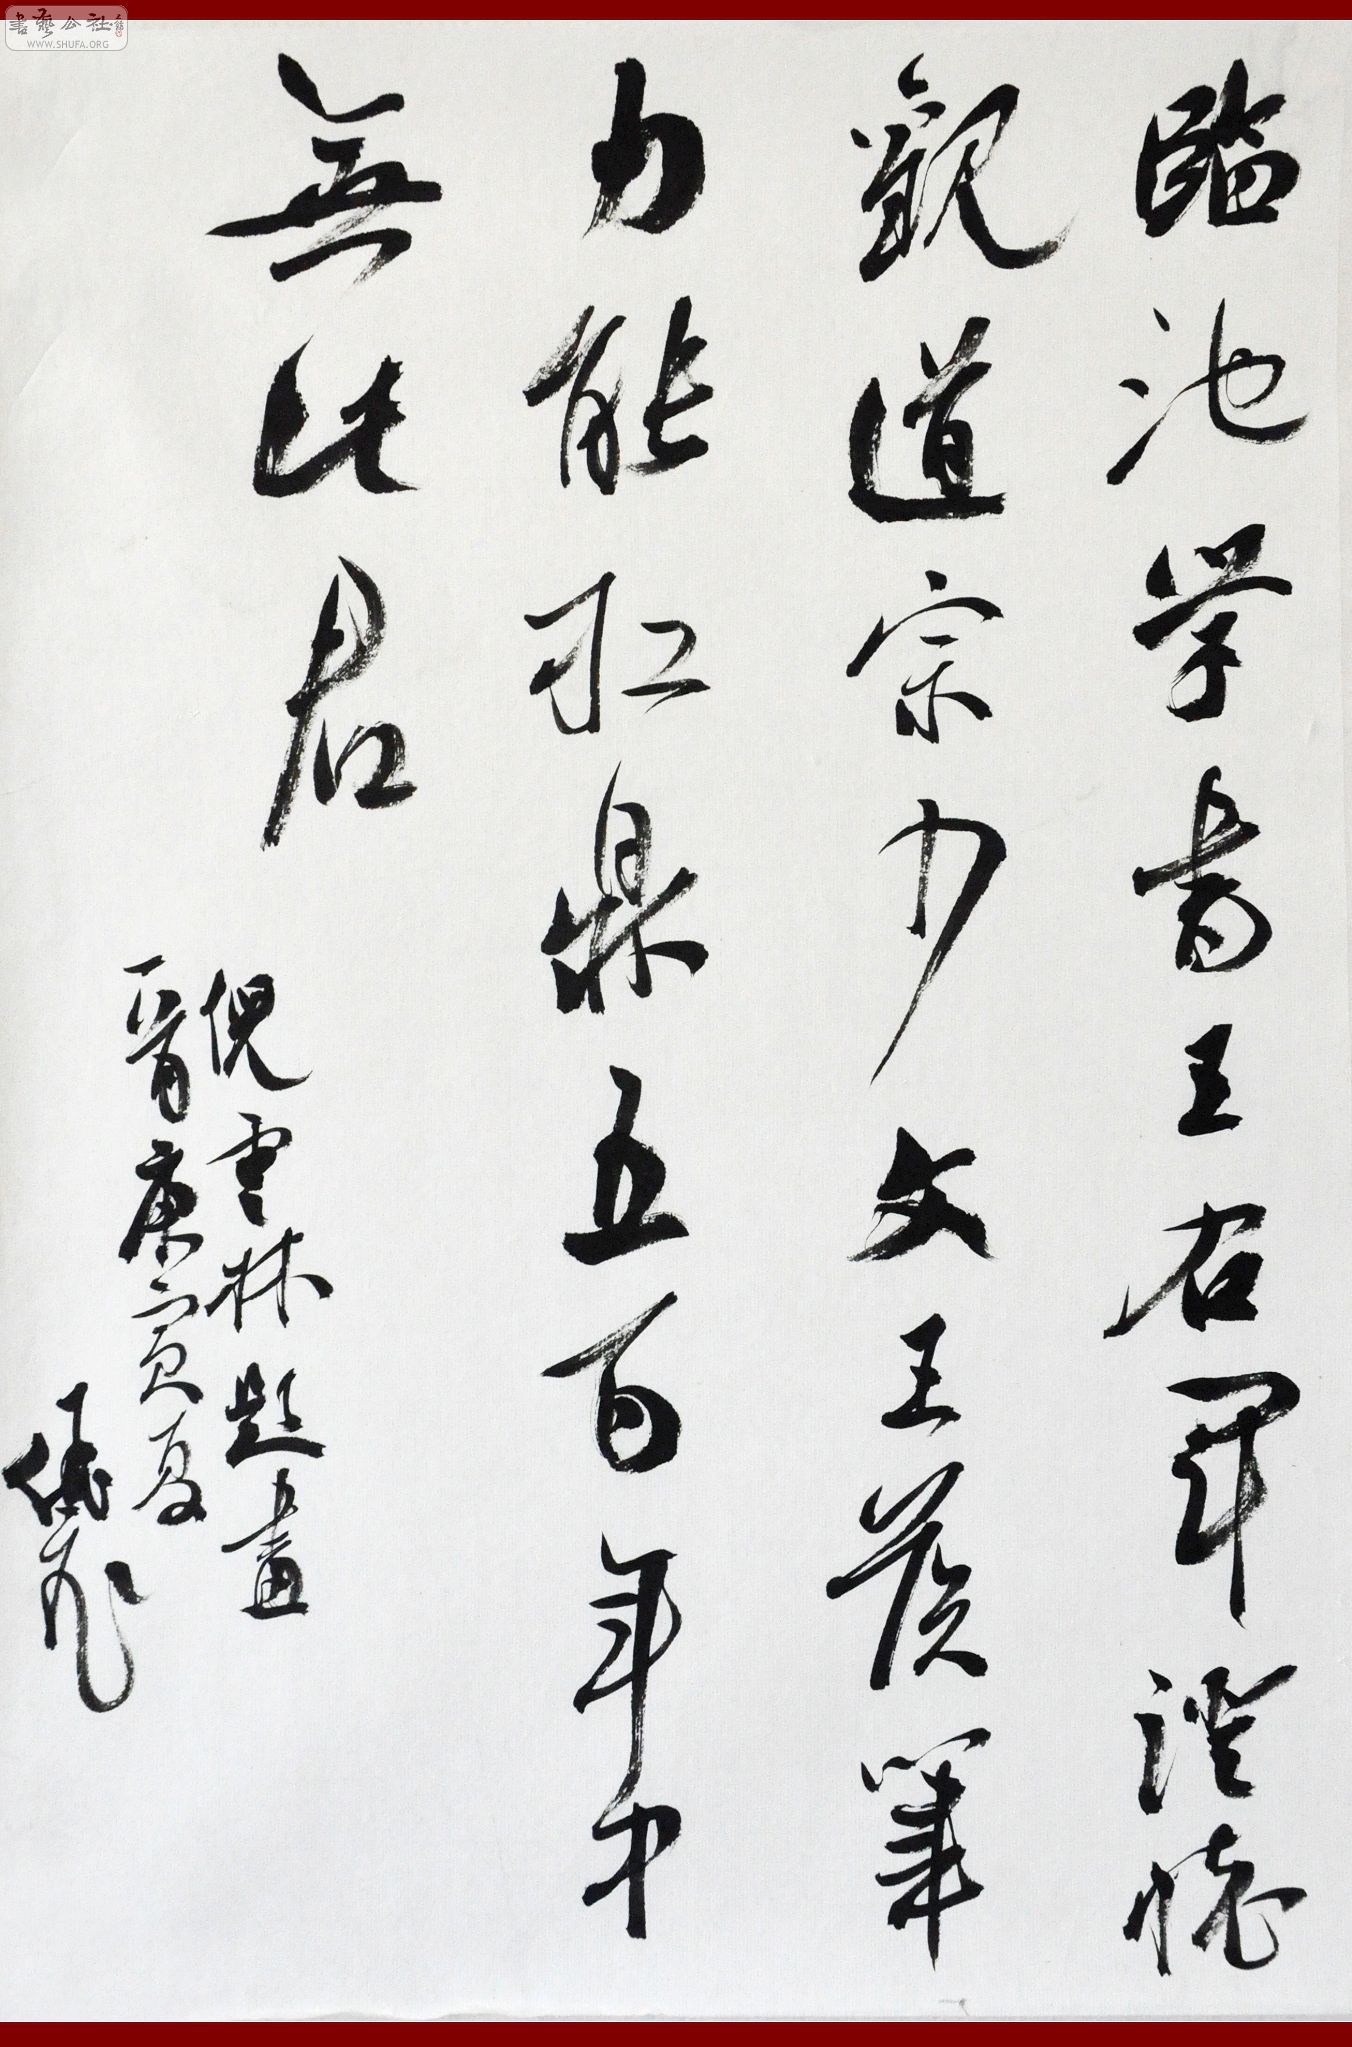 臨池学書王右軍澄懷
觀道宗少文王侯筆
力能扛鼎五百年中
無此君
倪雲林題畫
一首庚寅夏
書藝公社
WWW.SHUFA.ORG